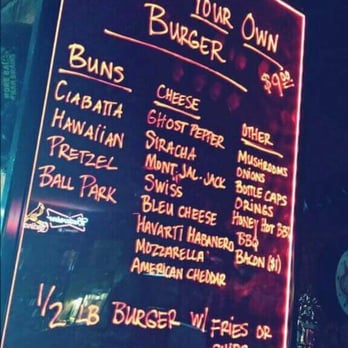 Your Own
Burger
$9.00
Buns
Ciabatta
Hawaiian
Pretzel
Ball Park
Cheese
Ghost Pepper
Siracha
Mont. Jal. Jack
Swiss
Bleu Cheese
Havarti Habanero
Mozzarella
American Cheddar
Other
Mushrooms
Onions
Bottle Caps
O Rings
Honey Hot BBQ
BBQ
Bacon ($1)
1/2 LB Burger w/ Fries or